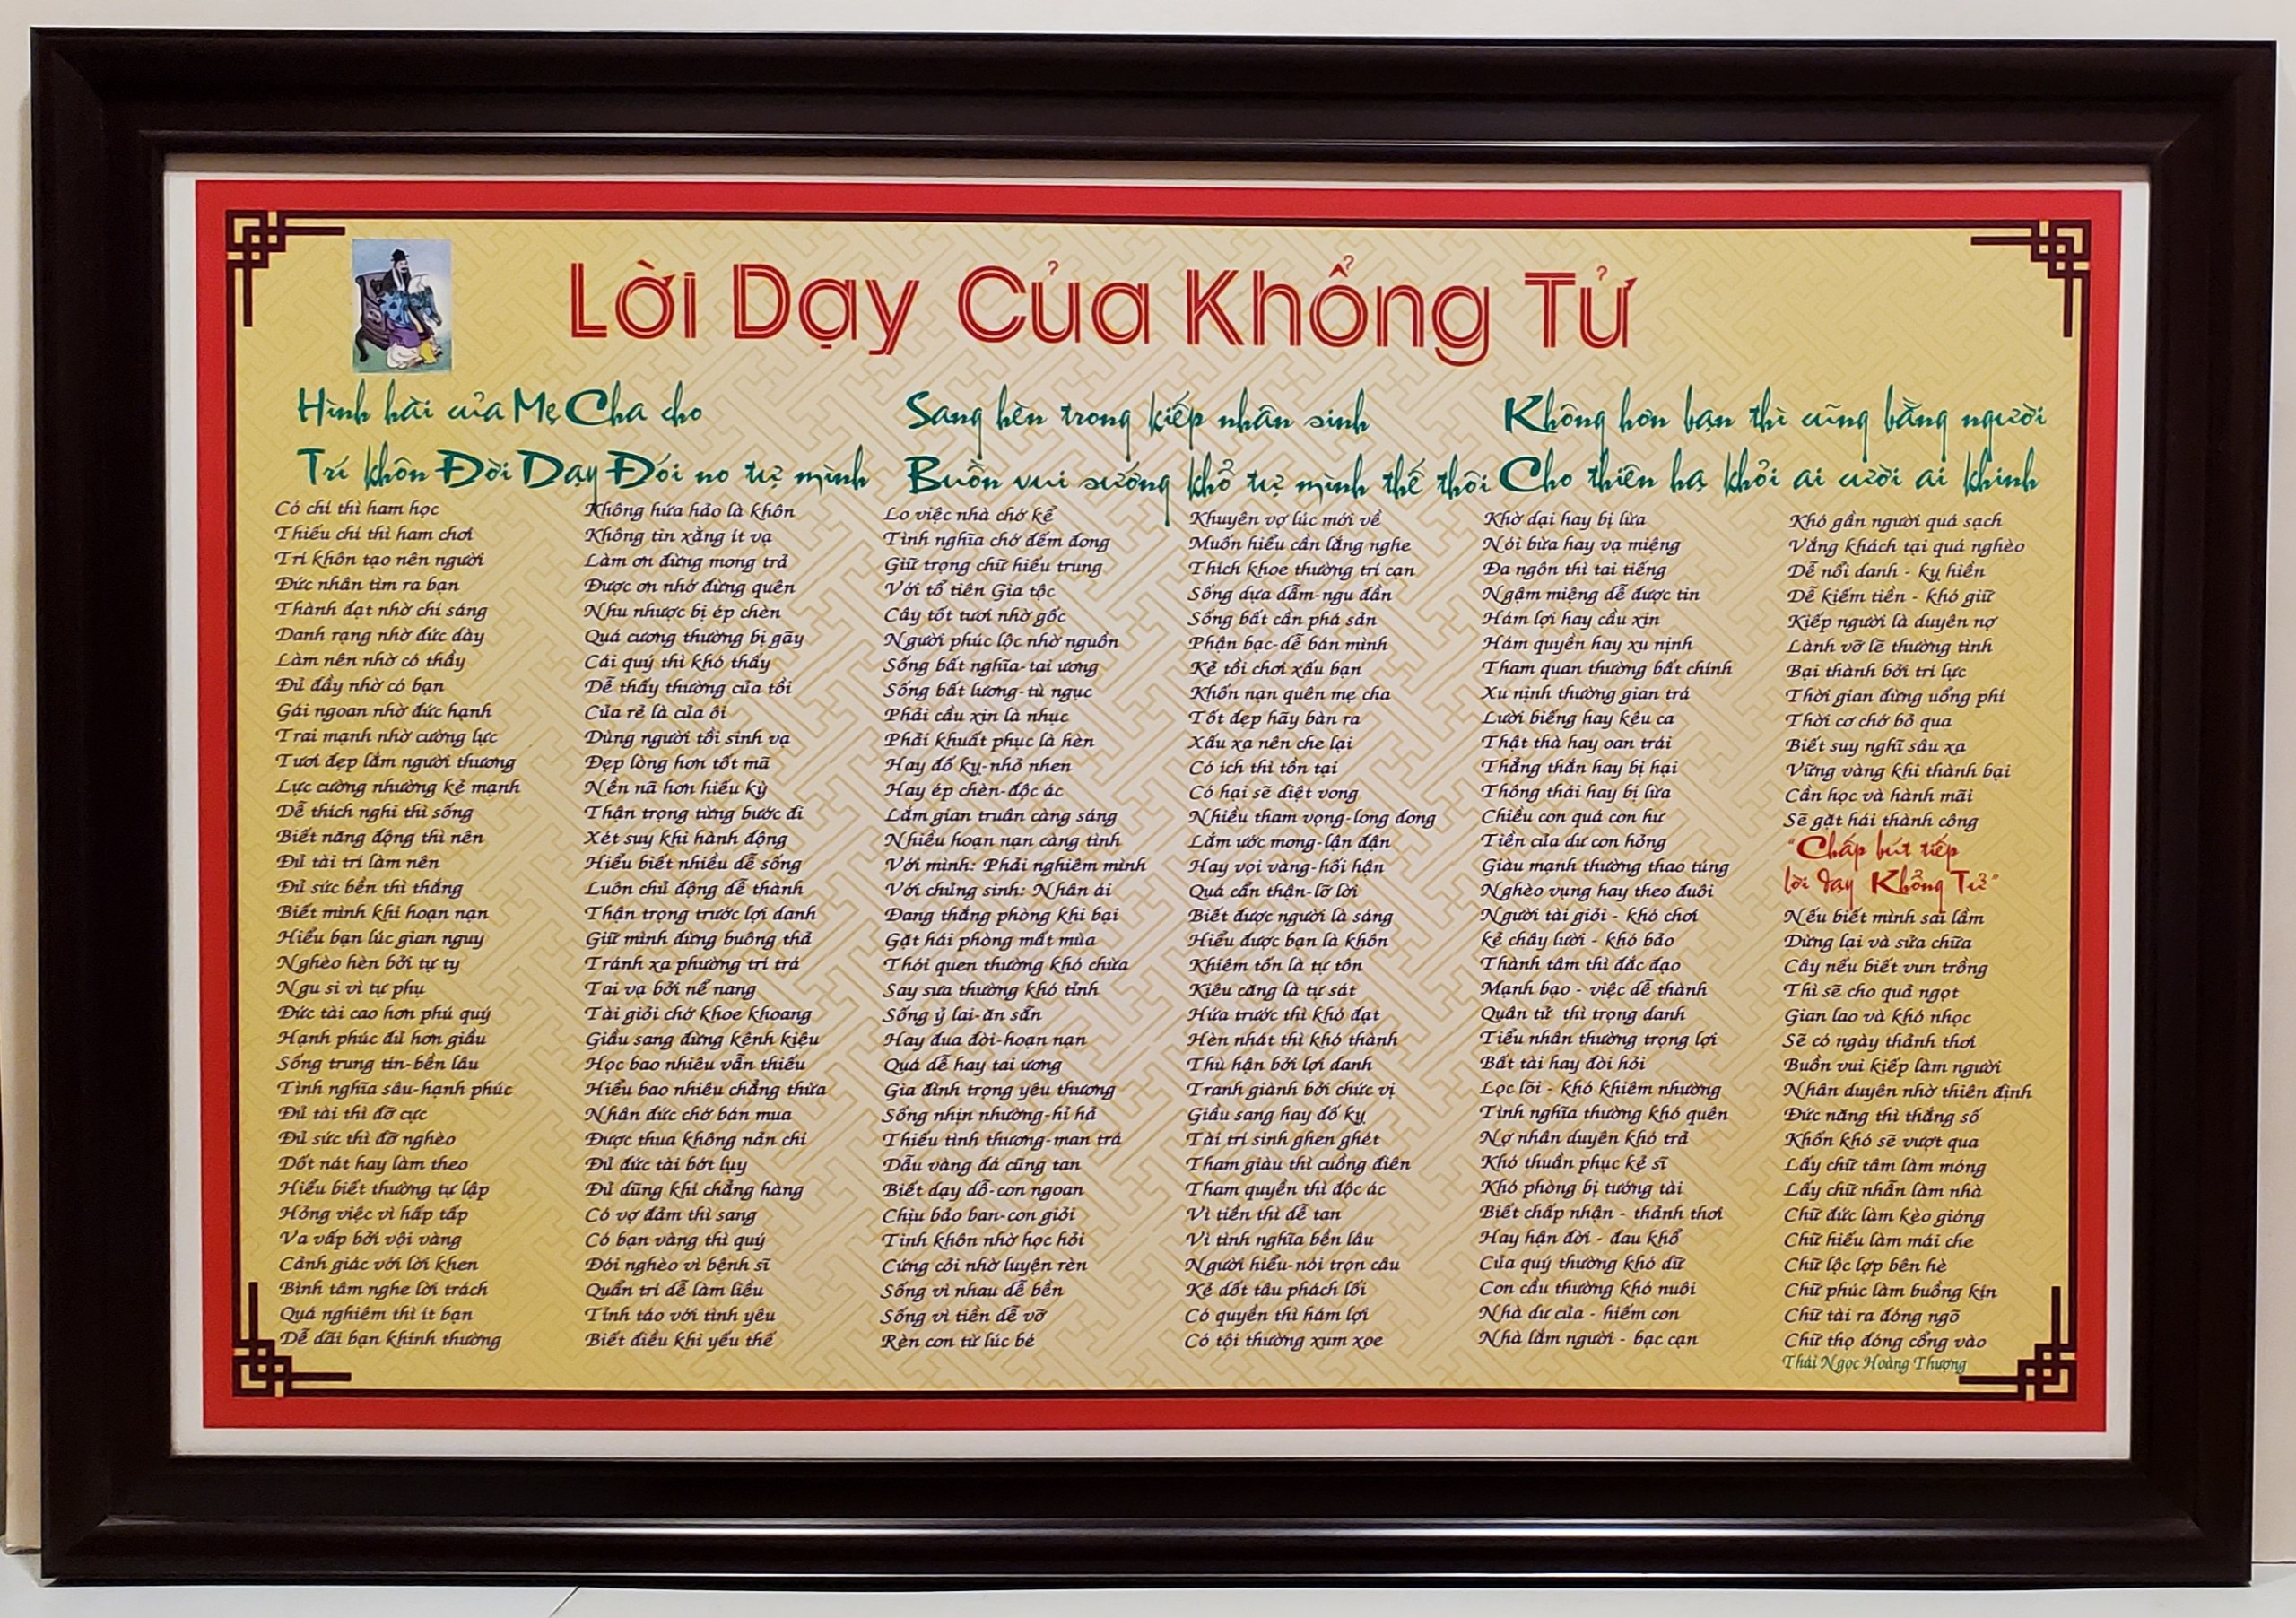 Lời Dạy Của Khổng Tử
Hình hài của Mẹ Cha cho
Trí khôn Đời Dạy Đói no tự mình
Sang hèn trong kiếp nhân sinh
Buồn vui sướng khổ tự mình thế thôi
Không hơn bạn thì cũng bằng người
Cho thiên hạ khỏi ai cười ai khinh
Có chí thì ham học
Thiếu chí thì ham chơi
Trí khôn tạo nên người
Đức nhân tìm ra bạn
Thành đạt nhờ chí sáng
Danh rạng nhờ đức dày
Làm nên nhờ có thầy
Đủ đầy nhờ có bạn
Gái ngoan nhờ đức hạnh
Trai mạnh nhờ cường lực
Tươi đẹp lắm người thương
Lực cường nhường kẻ mạnh
Dễ thích nghi thì sống
Biết năng động thì nên
Đủ tài trí làm nên
Đủ sức bền thì thắng
Biết mình khi hoạn nạn
Hiểu bạn lúc gian nguy
Nghèo hèn bởi tự ty
Ngu si vì tự phụ
Đức tài cao hơn phú quý
Hạnh phúc đủ hơn giầu
Sống trung tín-bền lâu
Tình nghĩa sâu-hạnh phúc
Đủ tài thì đỡ cực
Đủ sức thì đỡ nghèo
Dốt nát hay làm theo
Hiểu biết thường tự lập
Hỏng việc vì hấp tấp
Va vấp bởi vội vàng
Cảnh giác với lời khen
Bình tâm nghe lời trách
Quá nghiêm thì ít bạn
Dễ dãi bạn khinh thường
Không hứa hảo là khôn
Không tin xằng ít vạ
Làm ơn đừng mong trả
Được ơn nhớ đừng quên
Nhu nhược bị ép chèn
Quá cương thường bị gãy
Cái quý thì khó thấy
Dễ thấy thường của tồi
Của rẻ là của ôi
Dùng người tồi sinh vạ
Đẹp lòng hơn tốt mã
Nền nã hơn hiếu kỳ
Thận trọng từng bước đi
Xét suy khi hành động
Hiểu biết nhiều dễ sống
Luôn chủ động dễ thành
Thận trọng trước lợi danh
Giữ mình đừng buông thả
Tránh xa phường trí trá
Tai vạ bởi nể nang
Tài giỏi chớ khoe khoang
Giầu sang đừng kênh kiệu
Học bao nhiêu vẫn thiếu
Hiểu bao nhiêu chẳng thừa
Nhân đức chớ bán mua
Được thua không nản chí
Đủ đức tài bớt lụy
Đủ dũng khí chẳng hàng
Có vợ đảm thì sang
Có bạn vàng thì quý
Đói nghèo vì bệnh sĩ
Quẩn trí dễ làm liều
Tỉnh táo với tình yêu
Biết điều khi yếu thế
Lo việc nhà chớ kể
Tình nghĩa chớ đếm đong
Giữ trọng chữ hiếu trung
Với tổ tiên Gia tộc
Cây tốt tươi nhờ gốc
Người phúc lộc nhờ nguồn
Sống bất nghĩa-tai ương
Sống bất lương-tù ngục
Phải cầu xin là nhục
Phải khuất phục là hèn
Hay đố kỵ-nhỏ nhen
Hay ép chèn-độc ác
Lắm gian truân càng sáng
Nhiều hoạn nạn càng tinh
Với mình: Phải nghiêm minh
Với chúng sinh: Nhân ái
Đang thắng phòng khi bại
Gặt hái phòng mất mùa
Thói quen thường khó chừa
Say sưa thường khó tỉnh
Sống ỷ lại-ăn sẵn
Hay đua đòi-hoạn nạn
Quá dễ hay tai ương
Gia đình trọng yêu thương
Sống nhịn nhường-hỉ hả
Thiếu tình thương-man trá
Dẫu vàng đá cũng tan
Biết dạy dỗ-con ngoan
Chịu bảo ban-con giỏi
Tinh khôn nhờ học hỏi
Cứng cỏi nhờ luyện rèn
Sống vì nhau dễ bền
Sống vì tiền dễ vỡ
Rèn con từ lúc bé
Khuyên vợ lúc mới về
Muốn hiểu cần lắng nghe
Thích khoe thường trí cạn
Sống dựa dẫm-ngu đần
Sống bất cần phá sản
Phận bạc-dễ bán mình
Kẻ tồi chơi xấu bạn
Khốn nạn quên mẹ cha
Tốt đẹp hãy bàn ra
Xấu xa nên che lại
Có ích thì tồn tại
Có hại sẽ diệt vong
Nhiều tham vọng-long đong
Lắm ước mong-lận đận
Hay vọi vàng-hối hận
Quá cẩn thận-lỡ lời
Biết được người là sáng
Hiểu được bạn là khôn
Khiêm tốn là tự tôn
Kiêu căng là tự sát
Hứa trước thì khó đạt
Hèn nhát thì khó thành
Thù hận bởi lợi danh
Tranh giành bởi chức vị
Giầu sang hay đố kỵ
Tài trí sinh ghen ghét
Tham giàu thì cuồng điên
Tham quyền thì độc ác
Vì tiền thì dễ tan
Vì tình nghĩa bền lâu
Người hiểu-nói trọn câu
Kẻ dốt tâu phách lối
Có quyền thì hám lợi
Có tội thường xum xoe
Khờ dại hay bị lừa
Nói bừa hay vạ miệng
Đa ngôn thì tai tiếng
Ngậm miệng dễ được tin
Hám lợi hay cầu xin
Hám quyền hay xu nịnh
Tham quan thường bất chính
Xu nịnh thường gian trá
Lười biếng hay kêu ca
Thật thà hay oan trái
Thẳng thắn hay bị hại
Thông thái hay bị lừa
Chiều con quá con hư
Tiền của dư con hỏng
Giàu mạnh thường thao túng
Nghèo vụng hay theo đuôi
Người tài giỏi - khó chơi
kẻ chây lười - khó bảo
Thành tâm thì đắc đạo
Mạnh bạo - việc dễ thành
Quân tử thì trọng danh
Tiểu nhân thường trọng lợi
Bất tài hay đòi hỏi
Lọc lõi - khó khiêm nhường
Tình nghĩa thường khó quên
Nợ nhân duyên khó trả
Khó thuần phục kẻ sĩ
Khó phòng bị tướng tài
Biết chấp nhận - thảnh thơi
Hay hận đời - đau khổ
Của quý thường khó dữ
Con cầu thường khó nuôi
Nhà dư của - hiếm con
Nhà lắm người - bạc cạn
Khó gần người quá sạch
Vắng khách tại quá nghèo
Dễ nổi danh - kỵ hiền
Dễ kiếm tiền - khó giữ
Kiếp người là duyên nợ
Lành vỡ lẽ thường tình
Bại thành bởi trí lực
Thời gian đừng uổng phí
Thời cơ chớ bỏ qua
Biết suy nghĩ sâu xa
Vững vàng khi thành bại
Cần học và hành mãi
Sẽ gặt hái thành công
"Chấp bút tiếp
lời dạy Khổng Tử"
Nếu biết mình sai lầm
Dừng lại và sửa chữa
Cây nếu biết vun trồng
Thì sẽ cho quả ngọt
Gian lao và khó nhọc
Sẽ có ngày thảnh thơi
Buồn vui kiếp làm người
Nhân duyên nhờ thiên định
Đức năng thì thắng số
Khốn khó sẽ vượt qua
Lấy chữ tâm làm móng
Lấy chữ nhẫn làm nhà
Chữ đức làm kèo gióng
Chữ hiếu làm mái che
Chữ lộc lợp bên hè
Chữ phúc làm buồng kín
Chữ tài ra đóng ngõ
Chữ thọ đóng cổng vào
Thái Ngọc Hoàng Thượng